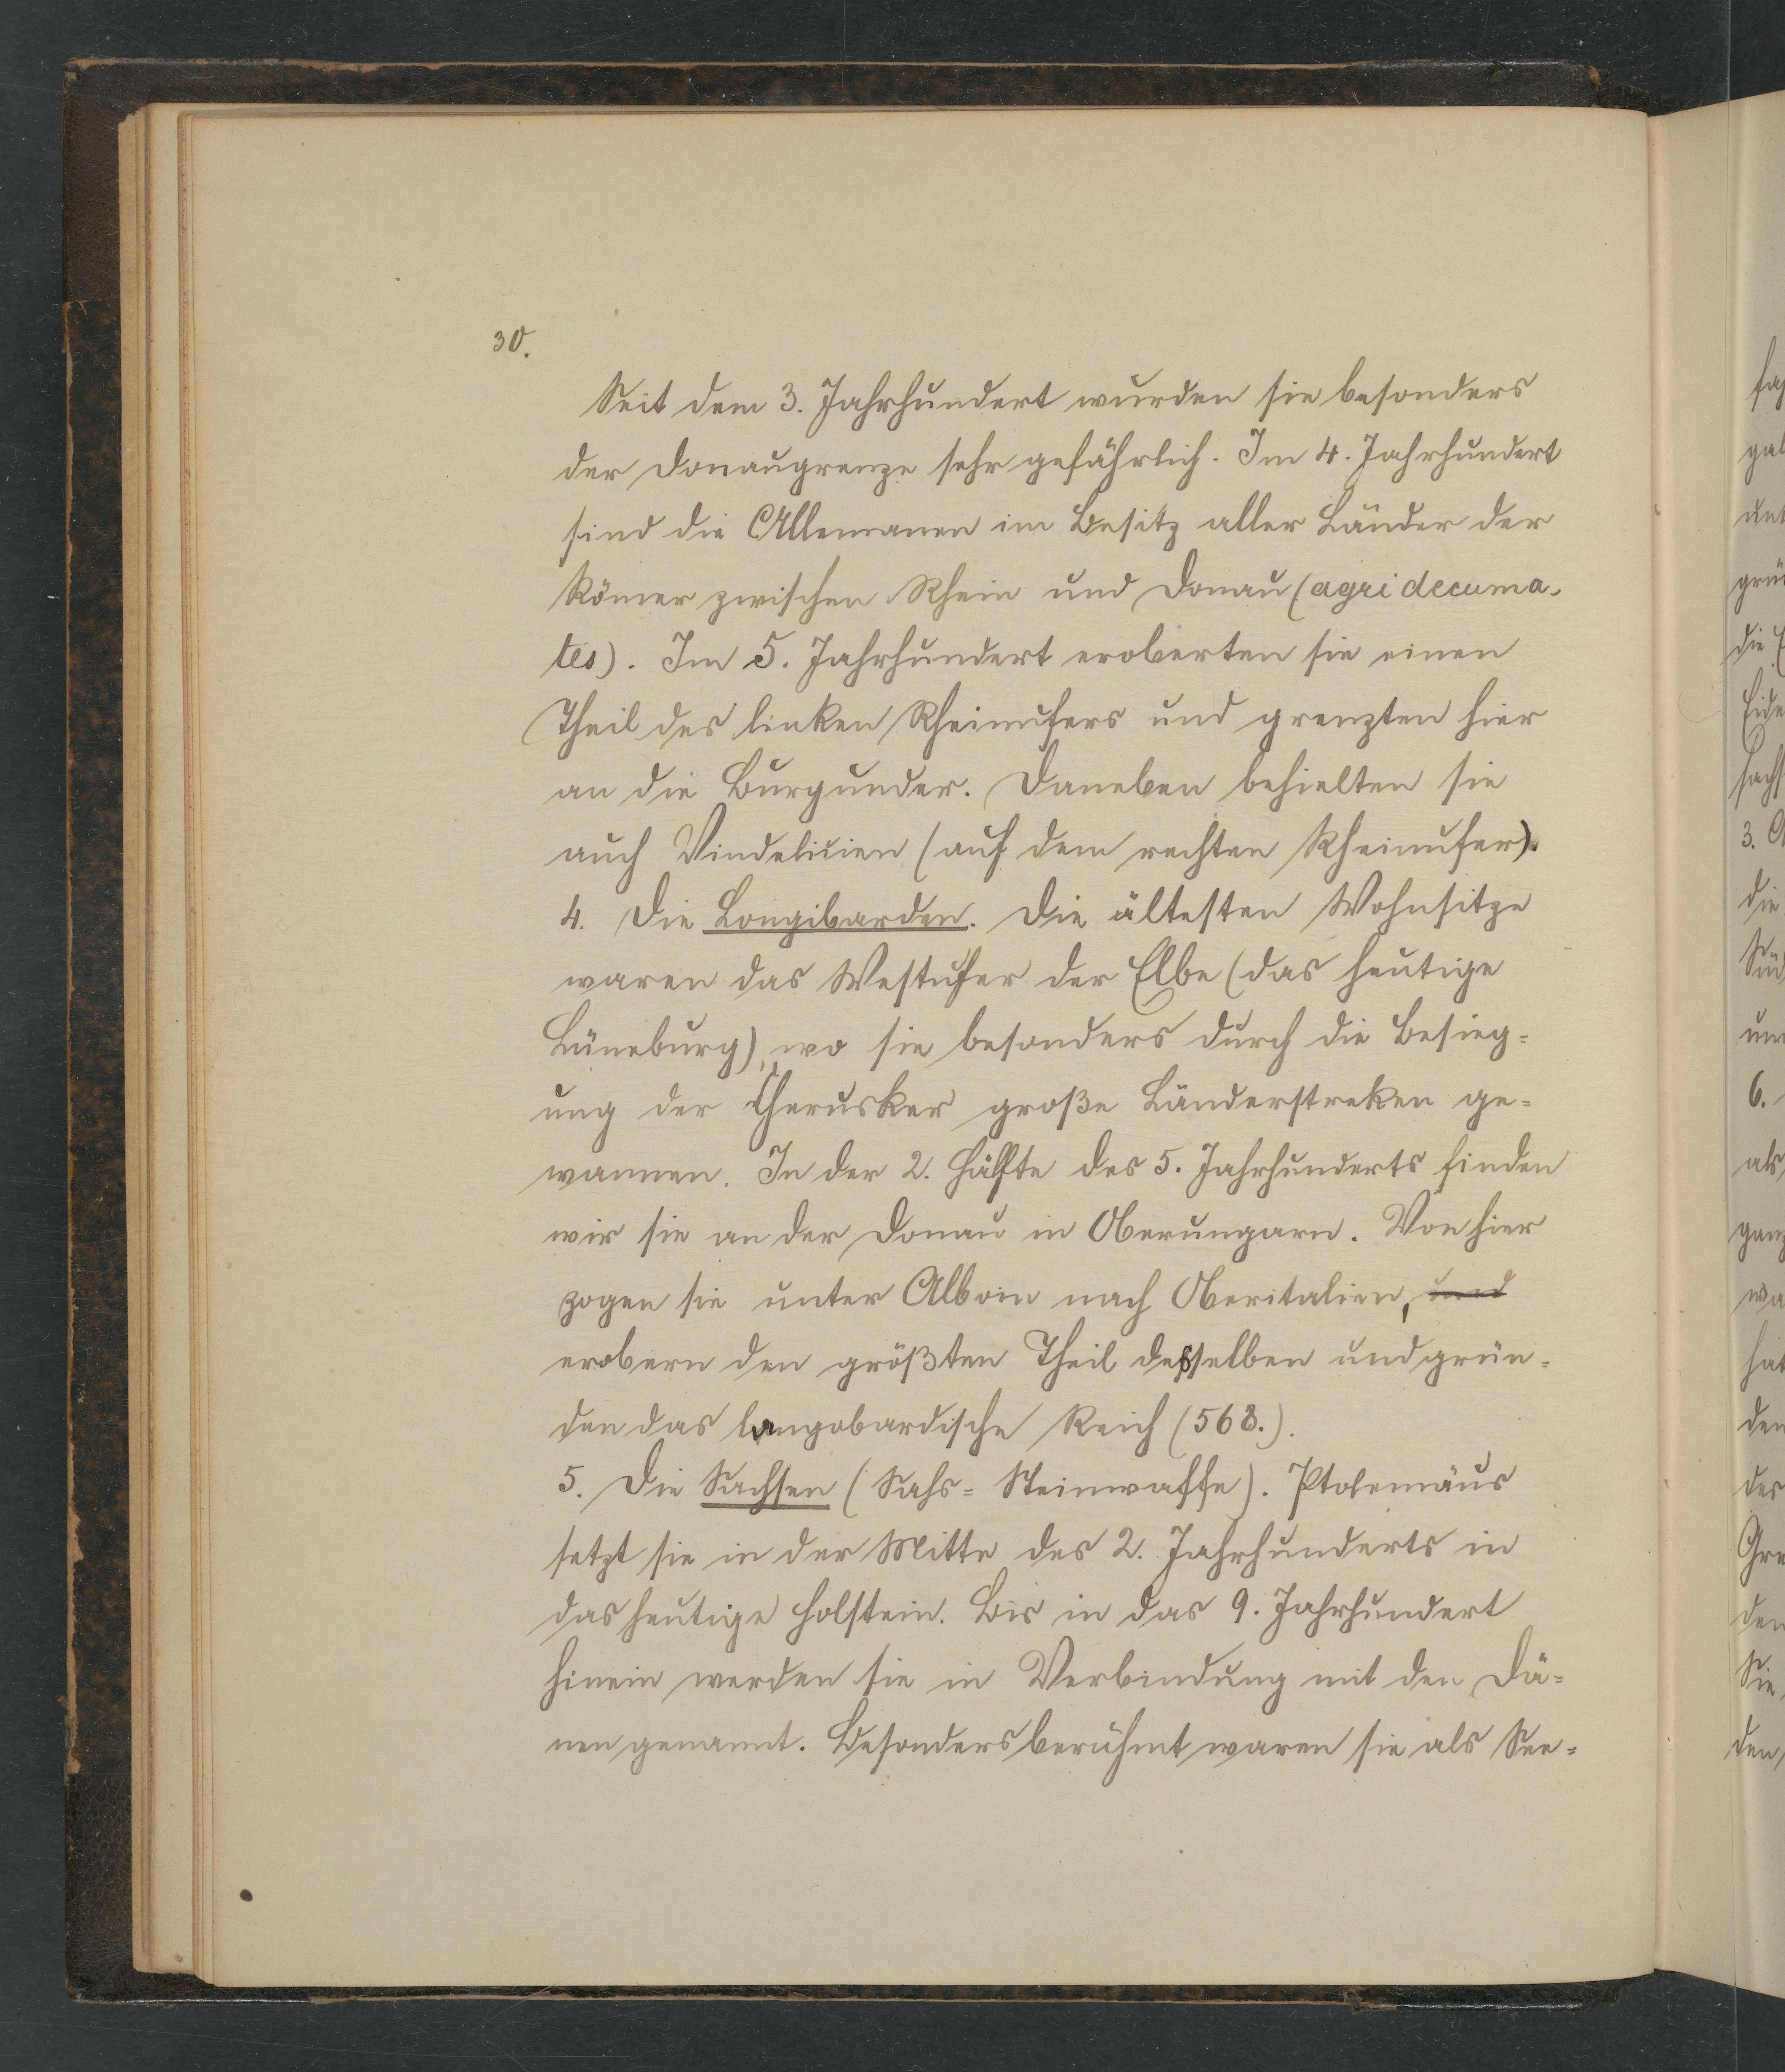 30.
Seit dem 3. Jahrhundert wurden sie besonders
der Donaugrenze sehr gefährlich. Im 4. Jahrhundert
sind die Allemanen im Besitz aller Länder der
Römer zwischen Rhein und Donau (agri decuma-
tes). Im 5. Jahrhundert eroberten sie einen
Theil des linken Rheinufers und grenzten hier
an die Burgunder. Daneben behielten sie
auch Vindelicien (auf dem rechten Rheinufer).
4. Die Longibarden. Die ältesten Wohnsitze
waren das Westufer der Elbe (das heutige
Lüneburg), wo sie besonders durch die Besieg=
ung der Cherusker große Länderstreken ge=
wannen. In der 2. Hälfte des 5. Jahrhunderts finden
wir sie an der Donau in Oberungarn. Von hier
zogen sie unter Alboin nach Oberitalien, und
erobern den größten Theil desselben und grün=
den das langobardische Reich (568.).
5. Die Sachsen (Sahs = Steinwaffe). Ptolemäus
setzt sie in der Mitte des 2. Jahrhunderts in
das heutige Holstein. Bis in das 9. Jahrhundert
hinein werden sie in Verbindung mit den Dä=
nen genannt. Besonders berühmt waren sie als See=